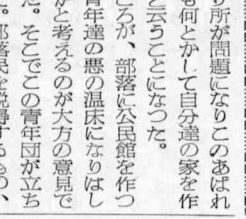 り所が問題になりこのあばれ
も何とかして自分達の家を作
と云うことになつた。
ころが、部落に公民館を作つ
青年達の悪の温床になりはし
かと考えるのが大方の意見で
た。そこでこの青年団が立ち
部落民を説得するもの、